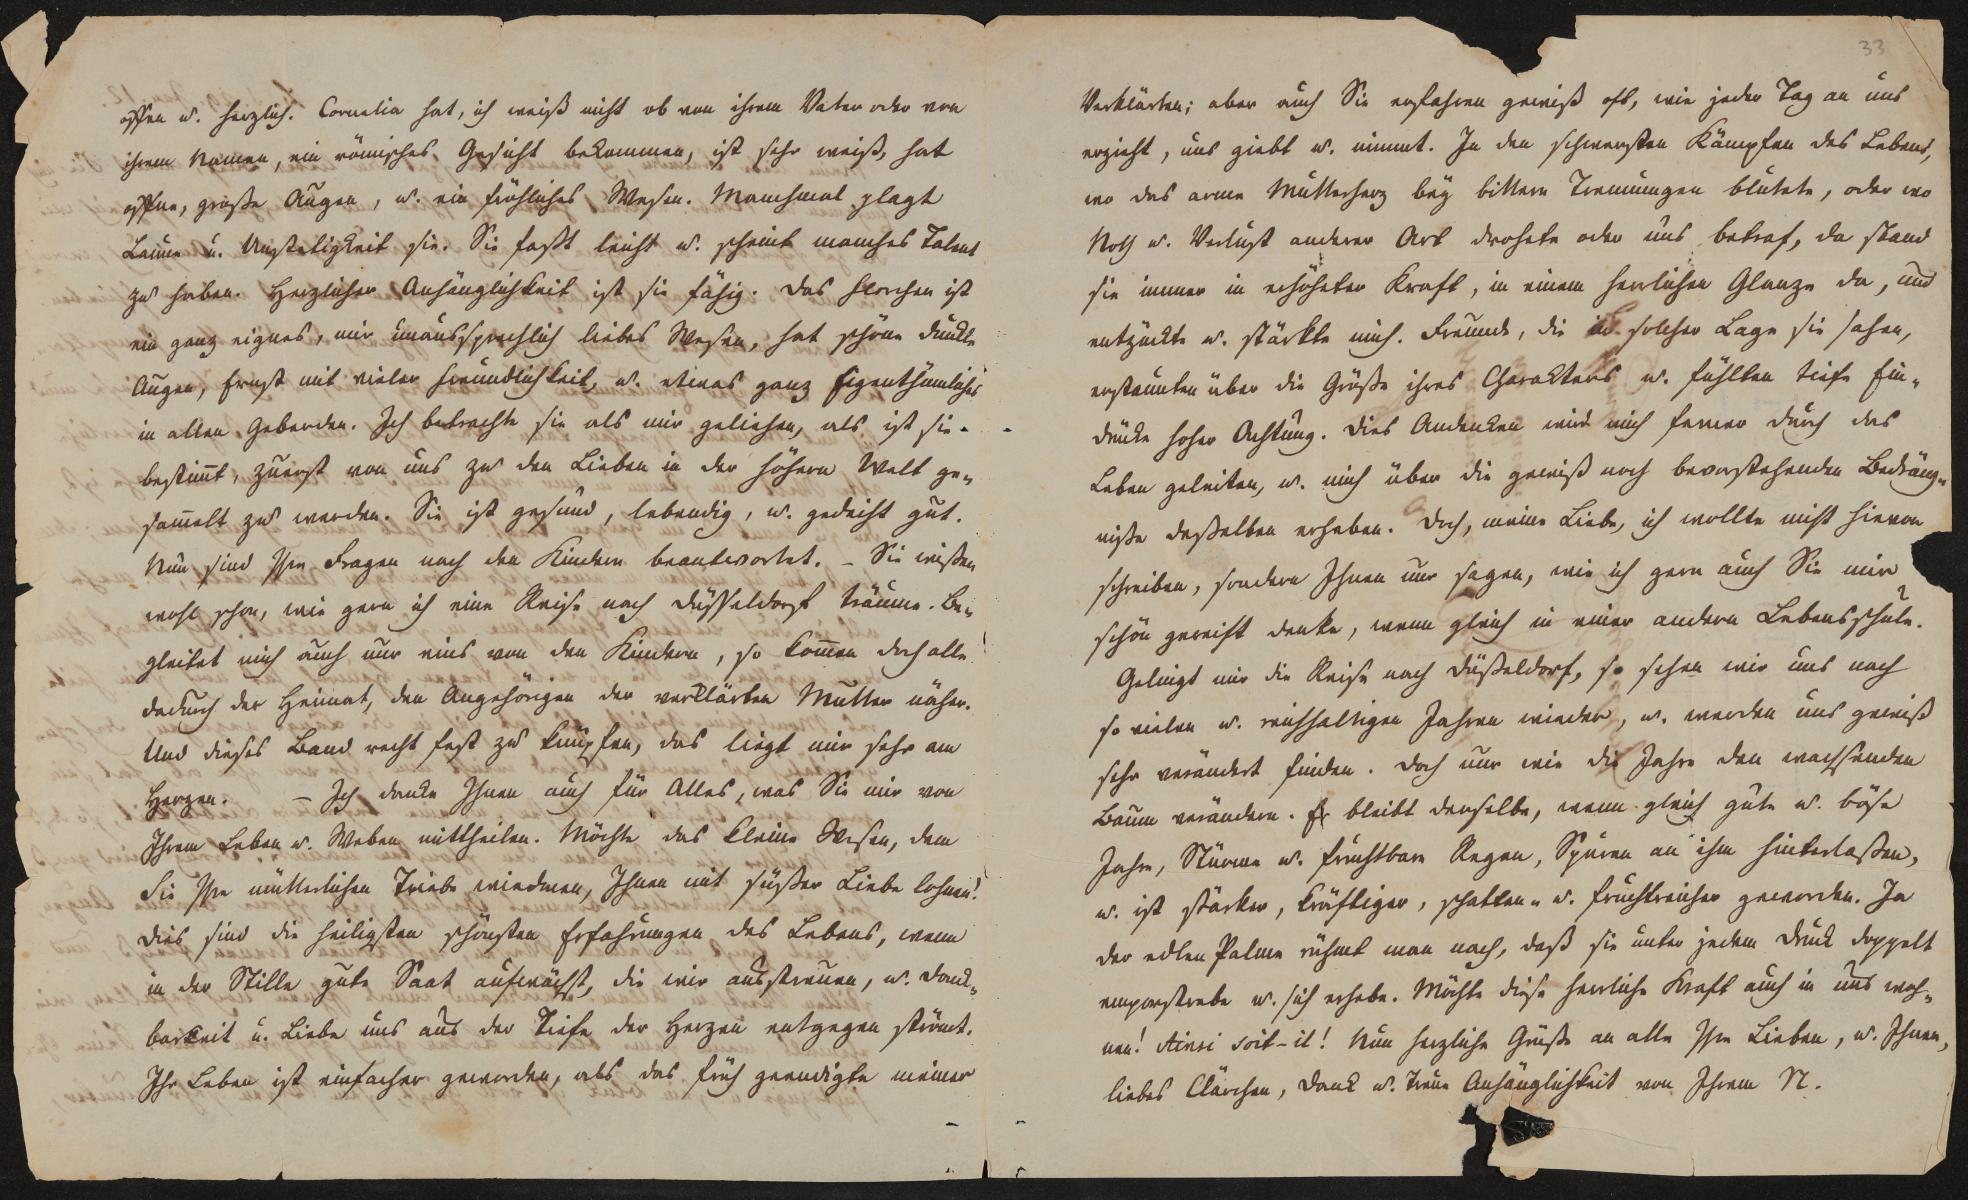 offen u. herzlich. Cornelia hat, ich weiß nicht ob von ihrem Vater oder von
ihrem Namen, ein römisches Gesicht bekommen, ist sehr weiß, hat
offne, große Augen, u. ein fröhliches Wesen. Manchmal plagt
Laune u. Unstetigkeit sie. Sie faßt leicht u. scheint manches Talent
zu haben. Herzlicher Anhänglichkeit ist sie fähig. Das Clärchen ist
ein ganz eignes, mir unaussprechlich liebes Wesen, hat schöne dunkle
Augen, Ernst mit vieler Freundlichkeit, u. etwas ganz Eigenthümliches
in allen Geberden. Ich betrachte sie als mir geliehen, als ist sie
bestimt, zuerst von uns zu den Lieben in der höhern Welt ge-
samelt zu werden. Sie ist gesund, lebendig, u. gedeiht gut.
Nun sind Ihre Fragen nach den Kindern beantwortet. – Sie wißen
wohl schon, wie gern ich eine Reise nach Düsseldorf träume. Be-
gleitet mich auch nur eins von den Kindern, so komen doch alle
dadurch der Heimat, den Angehörigen der verklärten Mutter näher.
Und dieses Band recht fest zu knüpfen, das liegt mir sehr am
Herzen. – Ich danke Ihnen auch für Alles, was Sie mir von
Ihrem Leben u. Weben mittheilen. Möchte das kleine Wesen, dem
Sie Ihre mütterlichen Triebe wiedmen, Ihnen mit süßer Liebe lohnen!
Dies sind die heiligsten schönsten Erfahrungen des Lebens, wenn
in der Stille gute Saat aufwächst, die wir ausstreuen, u. Dank-
barkeit u. Liebe uns aus der Tiefe der Herzen entgegen strömt.
Ihr Leben ist einfacher geworden, als das früh geendigte meiner
33
Verklärten; aber auch Sie erfahren gewiß oft, wie jeder Tag an uns
erzieht, uns giebt u. nimmt. In den schwersten Kämpfen des Lebens,
wo das arme Mutterherz bey bittern Trennungen blutete, oder wo
Noth u. Verlust anderer Art drohete oder uns betraf, da stand
sie immer in erhöheter Kraft, in einem herrlichen Glanze da, und
entzückte u. stärkte mich. Freunde, die in solcher Lage sie sahen,
erstaunten über die Größe ihres Charakters u. fühlten tiefe Ein-
drücke hoher Achtung. Dies Andenken wird mich ferner durch das
Leben geleiten, u. mich über die gewiß noch bevorstehenden Bedräng-
niße deßelben erheben. Doch, meine Liebe, ich wollte nicht hievon
schreiben, sondern Ihnen nur sagen, wie ich gern auch Sie mir
schön gereift denke, wenn gleich in einer andern Lebensschule.
Gelingt mir die Reise nach Düßeldorf, so sehen wir uns nach
so vielen u. reichhaltigen Jahren wieder, u. werden uns gewiß
sehr verändert finden. Doch nur wie die Jahre den wachsenden
Baum verändern. Er bleibt derselbe, wenn gleich gute u. böse
Jahre, Stürme u. fruchtbare Regen, Spuren an ihm hinterlaßen,
u. ist stärker, kräftiger, schatten- u. fruchtreicher geworden. Ja
der edlen Palme rühmt man nach, daß sie unter jedem Druck doppelt
emporstrebe u. sich erhebe. Möchte diese herrliche Kraft auch in uns woh-
nen! Ainsi soit-il! Nun herzliche Grüße an alle Ihre Lieben, u. Ihnen,
liebes Clärchen, Dank u. treue Anhänglichkeit von Ihrem N.